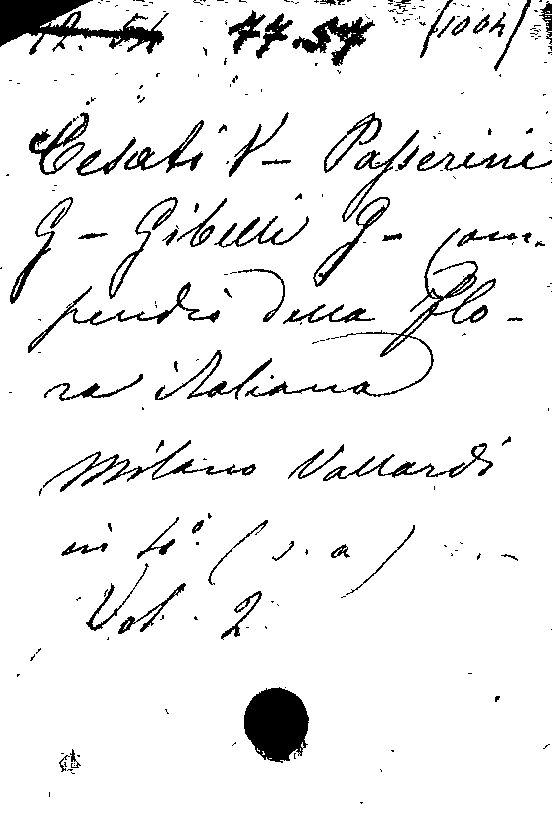 12. 54 77.57 (1004)
Cesati V - Passerini
G - Gibelli G - Com-
pendio della Flo-
ra italiana
Milano Vallardi
in 4° (s. a)
Vol. 2